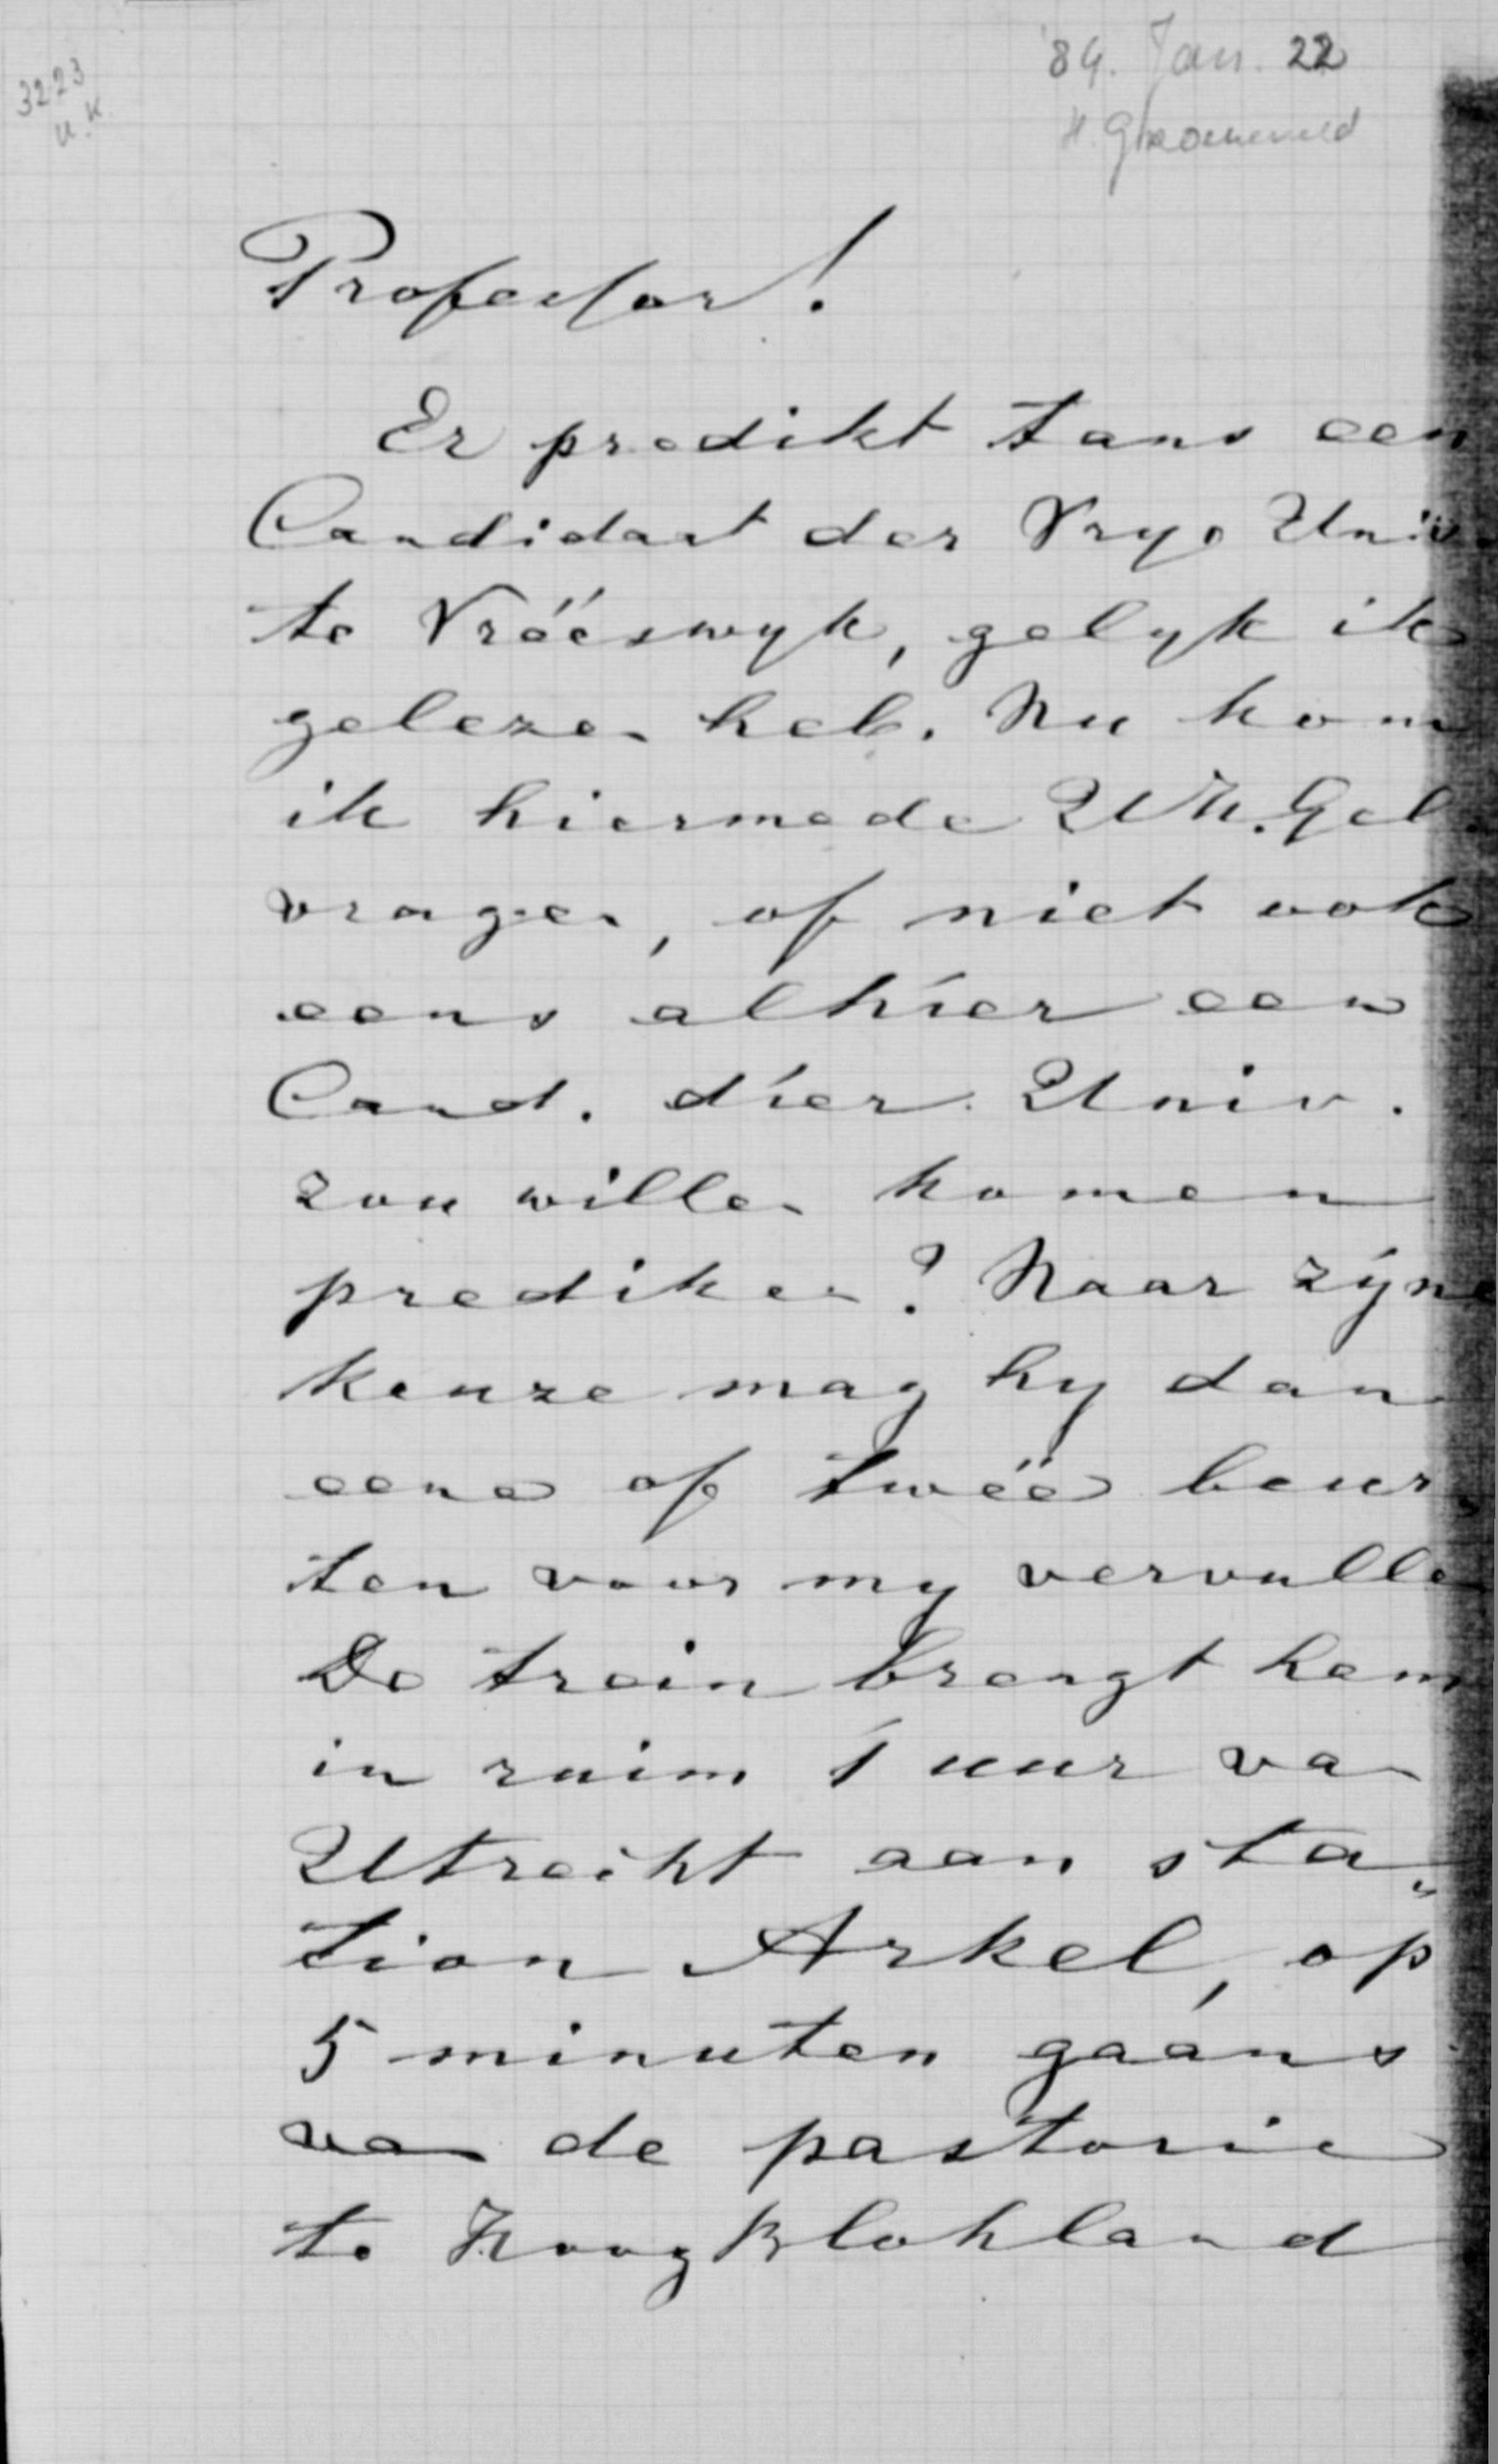 3223
U.K.
'84. Jan. 22
H. Groeneveld
Professor!
Er predikt tans een
Candidaat der Vrye Univ.
te Vrééswyk, gelyk ik
gelezen heb. Nu kom
ik hiermede UH.Gel.
vragen, of niet ook
eens alhier een
Cand. dier Univ.
zou willen komen
prediken? Naar zyne
keuze mag hy dan
eene of twee beur„
ten voor my vervullen
De trein brengt hem
in ruim 1 uur van
Utrecht aan sta„
tion Arkel, op
5 minuten gaans
van de pastorie
te HoogBlokland